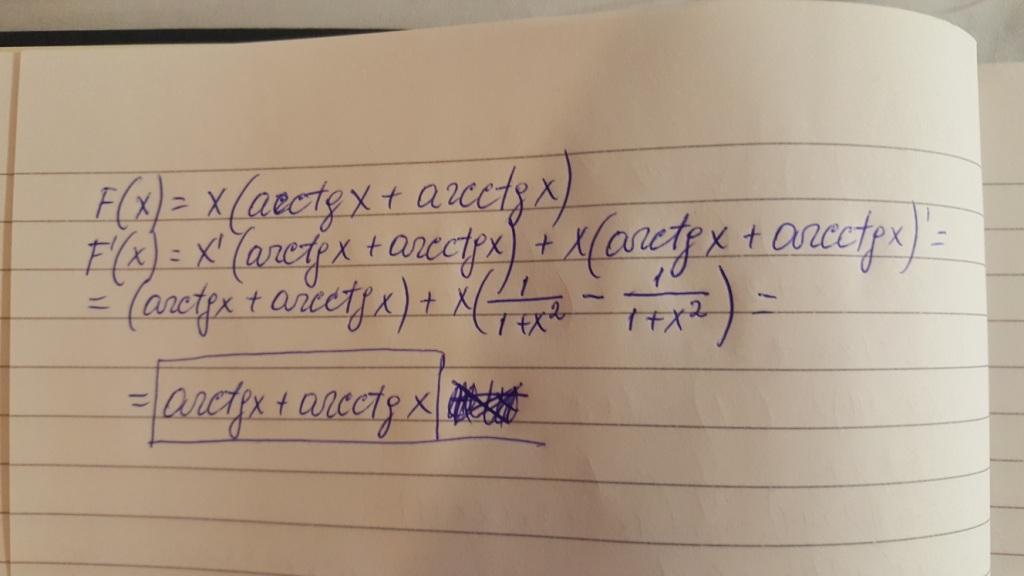 F(x) = x(arctgx + arcctgx)
F'(x) = x'(arctgx + arcctgx) + x(arctgx + arcctgx)' =
= (arctgx + arcctgx) + x(1/1+x² - 1/1+x²) =
= arctgx + arcctgx